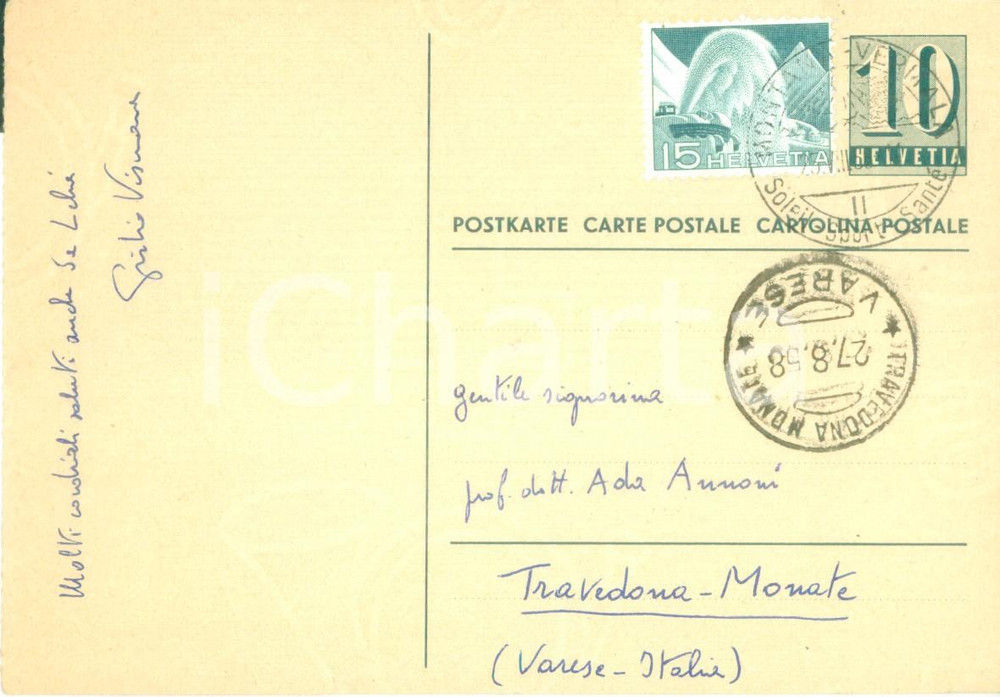 15 HELVETIA
10
HELVETIA
MONTANA-VERMALA
II
Soleil Sport Santé
POSTKARTE CARTE POSTALE CARTOLINA POSTALE
TRAVEDONA MONATE
27.8.58
VARESE
gentile signorina
prof. dott. Ada Annoni
Travedona-Monate
(Varese-Italia)
Molti cordiali saluti anche da
Giulio Vismara
iCharta